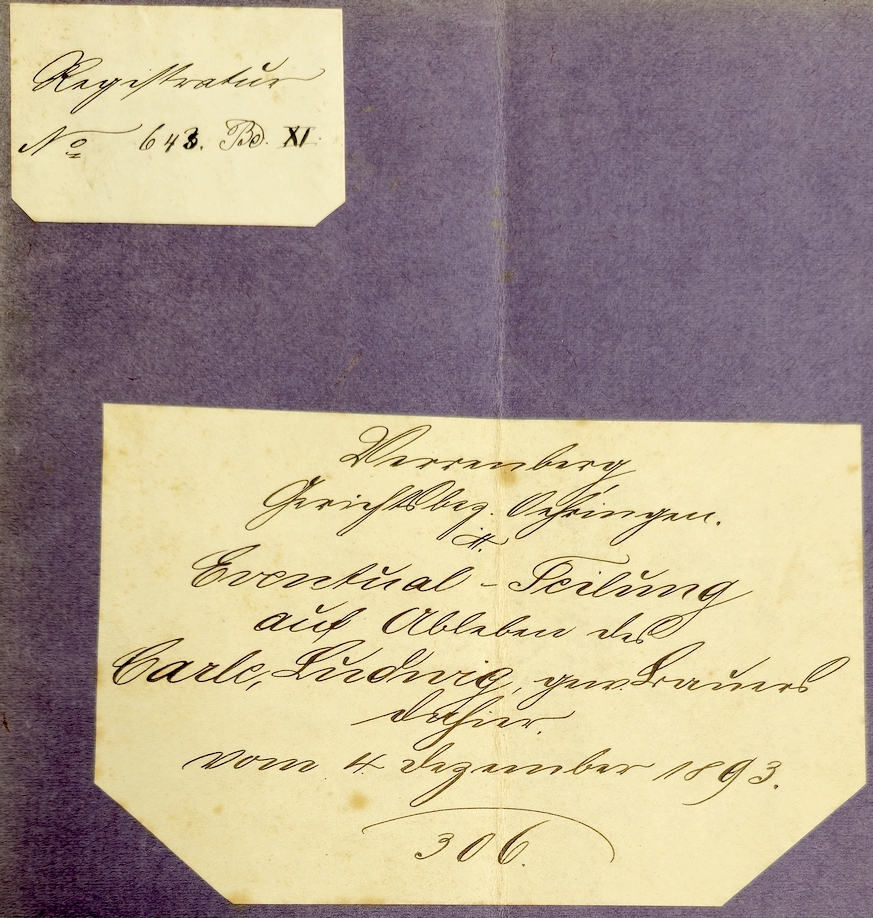 Registratur
No 643. Bd. XI.
Verrenberg
Gerichtsbez. Oehringen.
Eventual-Teilung
auf Ableben des
Carle, Ludwig, gew. Bauers
dahier.
vom 4. Dezember 1893.
306.